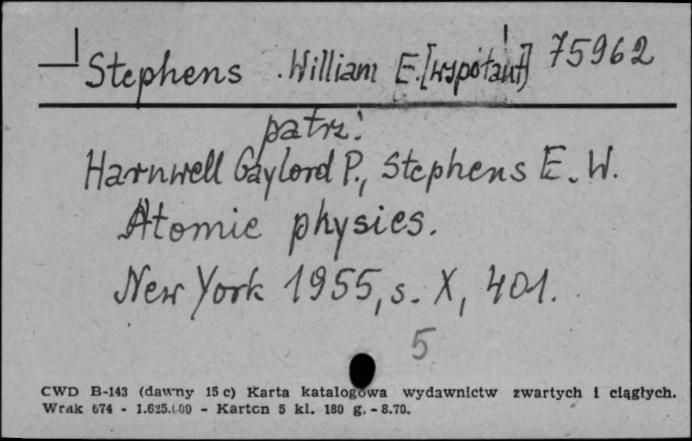 Stephens William E. [współaut] 75962
patrz:
Harnwell Gaylord P., Stephens E. W.
Atomic physics.
New York 1955, s. X, 401.
5
CWD B-143 (dawny 15 c) Karta katalogowa wydawnictw zwartych i ciągłych.
Wrak 674 - 1.625.000 - Karton 5 kl. 180 g. - 8.70.